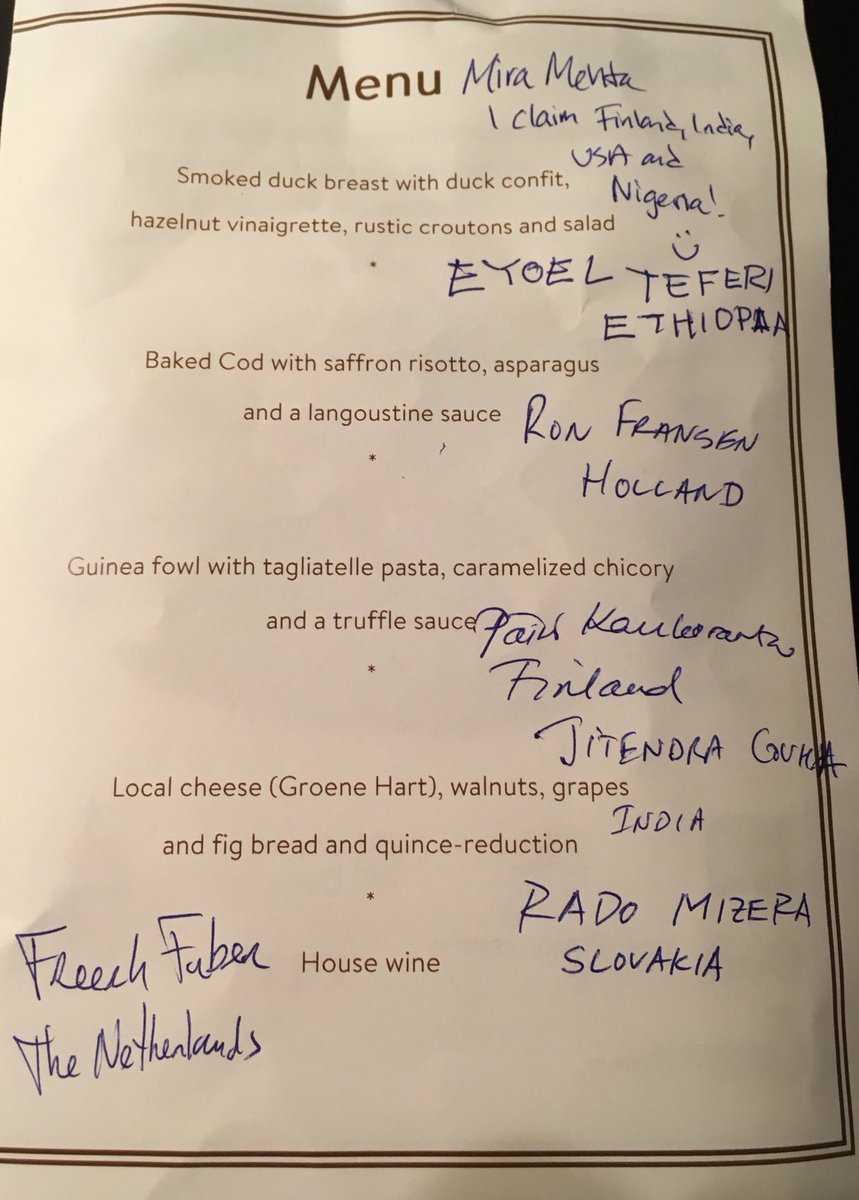 Menu Mira Mehta
I claim Finland, India,
USA and
Smoked duck breast with duck confit,
Nigeria!
hazelnut vinaigrette, rustic croutons and salad
*
EYOEL TEFERI
ETHIOPIA
Baked Cod with saffron risotto, asparagus
and a langoustine sauce RON FRANSEN
*
HOLLAND
Guinea fowl with tagliatelle pasta, caramelized chicory
and a truffle sauce
*
Finland
JITENDRA GUHA
Local cheese (Groene Hart), walnuts, grapes
INDIA
and fig bread and quince-reduction
*
RADO MIZERA
Faber House wine SLOVAKIA
The Netherlands